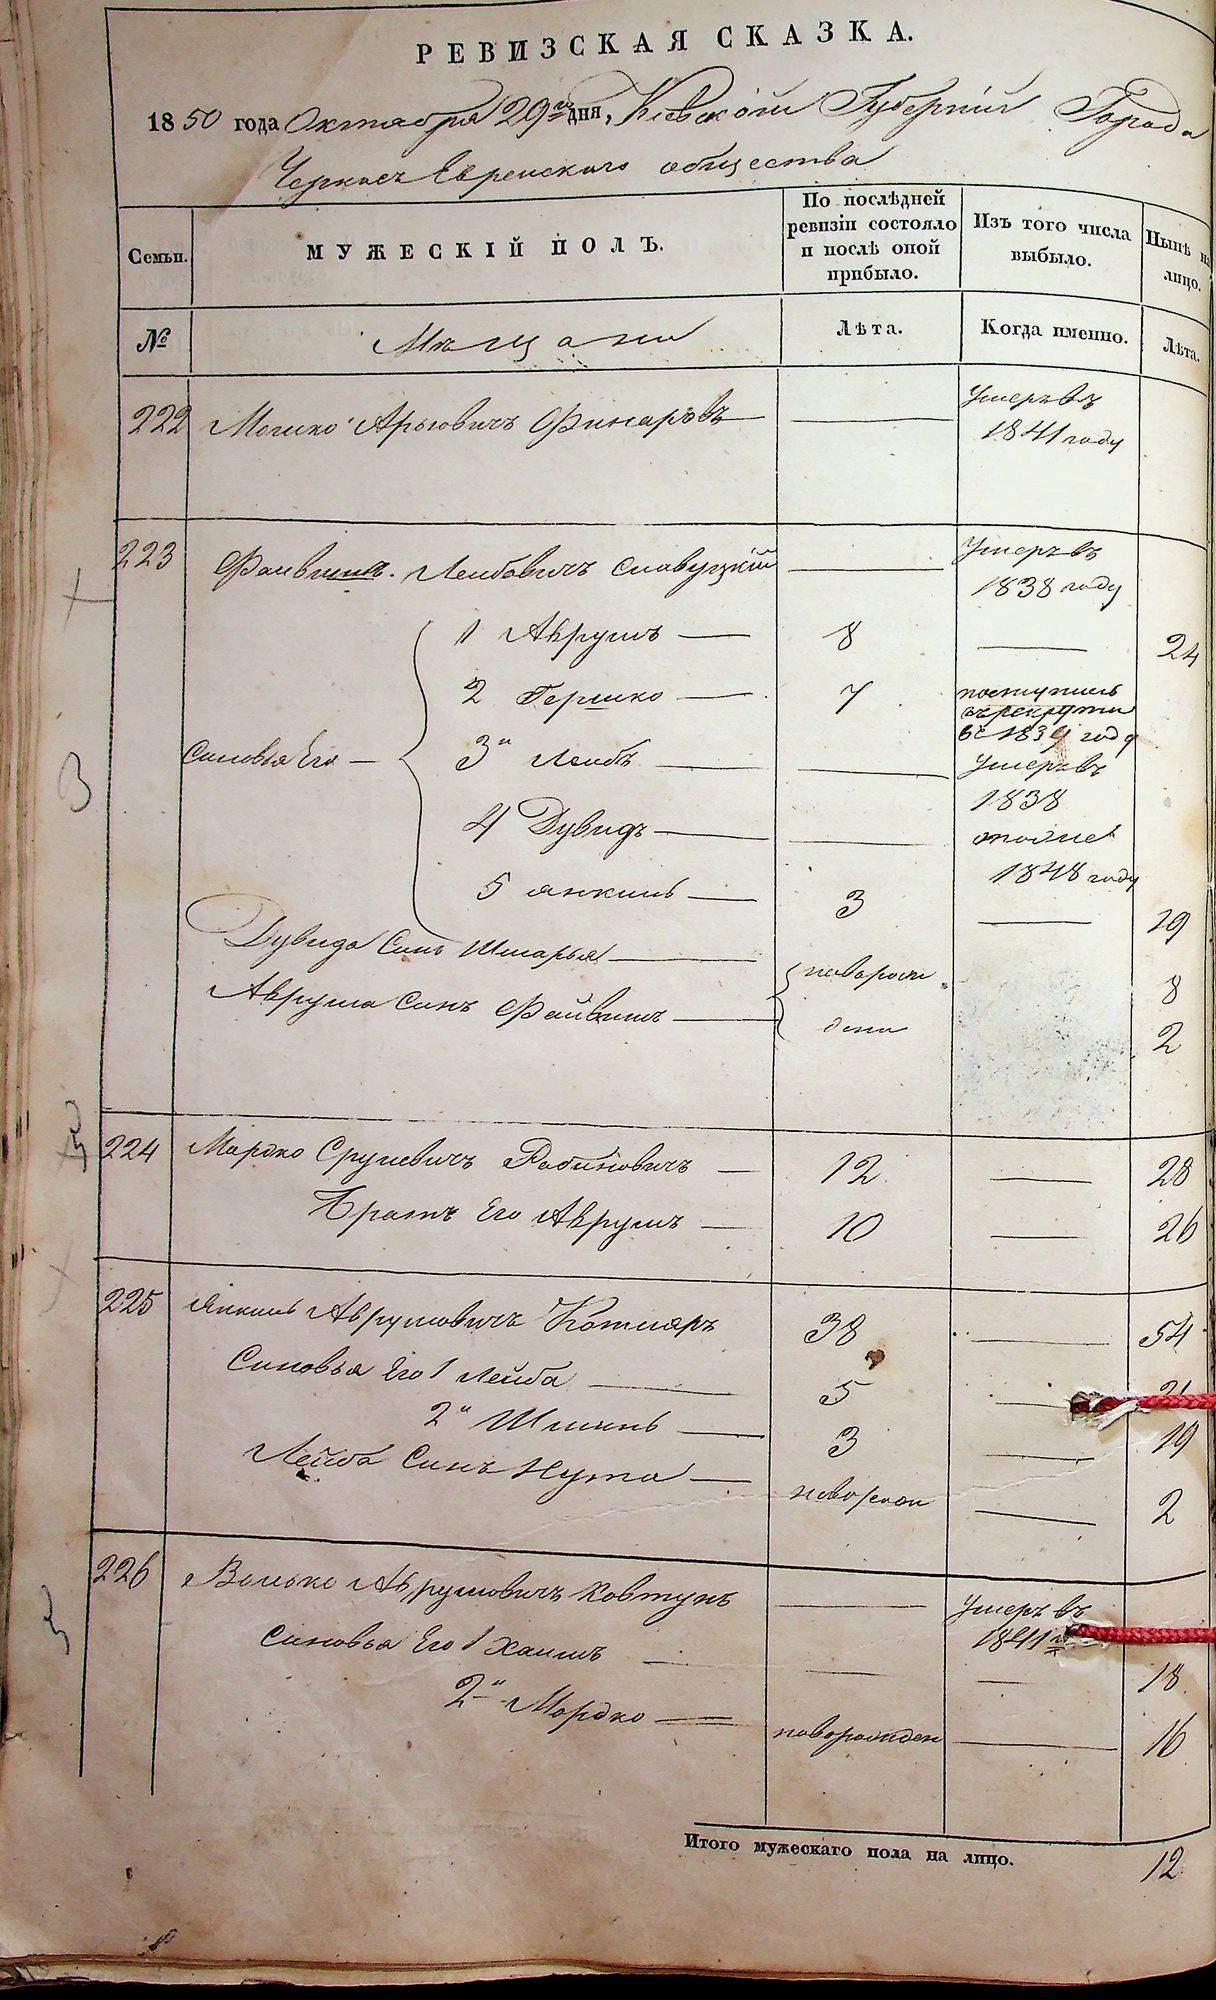 РЕВИЗСКАЯ СКАЗКА.
1850 года Октября 29го дня, Кіевской Губерніи Города
Черкасъ Еврейскаго общества
Семьи.
МУЖЕСКІЙ ПОЛЪ.
По послѣдней ревизіи состояло и послѣ оной прибыло.
Изъ того числа выбыло.
Нынѣ на лицо.
№
Мѣщани
Лѣта.
Когда именно.
Лѣта.
222 Мошко Арьювичъ Финаровъ — Умеръ въ 1841 году
223 Фаивишъ. Леибовичъ Славуцкій — Умеръ въ 1838 году
1 Аврумъ — 8 — 24
2 Гершко — 7 поступилъ въ рекруты въ 1839 году
Сыновья Его — 3й Леибъ — Умеръ въ 1838
4 Дувидъ — тоже 1848 году
5 Янкель — 3 — 19
Дувида Сынъ Шмарья — 8
новорож
Аврума Сынъ Файвишъ — 2
дени
224 Мордко Срулевичъ Рабиновичъ — 12 — 28
Братъ Его Аврумъ — 10 — 26
225 Янкель Аврумовичъ Котляръ 38 — 54
Сыновья Его 1 Лейба — 5 — 21
2й Шмиль — 3 — 19
Лейба Сынъ Нута — новорож — 2
226 Волько Аврумовичъ Ковтунъ — Умеръ въ 1841 го
Сыновья Его 1 Хаимъ — 18
2й Мордко — новорожден — 16
Итого мужескаго пола на лицо.
12